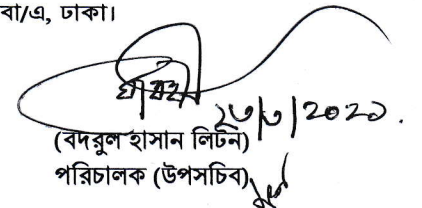 বা/এ, ঢাকা।
২৩/৩/২০২১.
(বদরুল হাসান লিটন)
পরিচালক (উপসচিব)